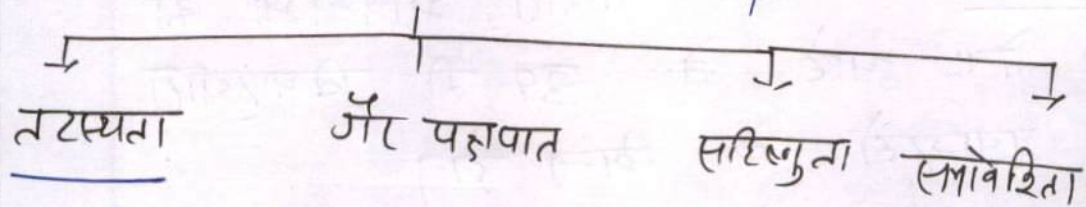 तटस्थता गैर पक्षपात सहिष्णुता समावेशिता